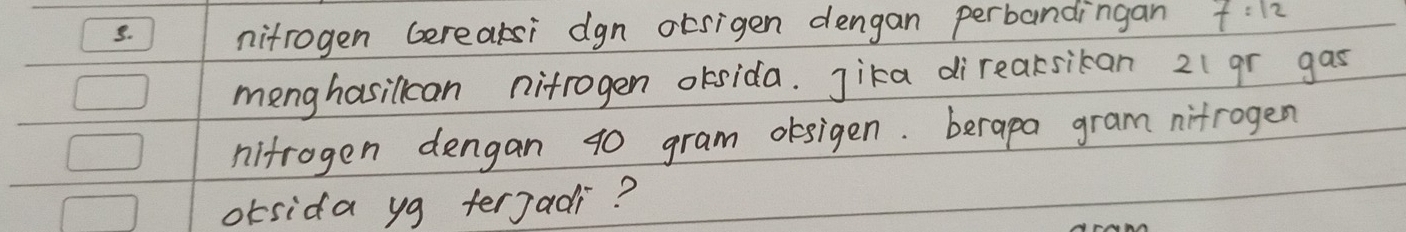 5. nitrogen bereaksi dgn oksigen dengan perbandingan 7:12
menghasilkan nitrogen oksida. Jika direaksikan 21 gr gas
nitrogen dengan 40 gram oksigen. berapa gram nitrogen
oksida yg terjadi?
gram